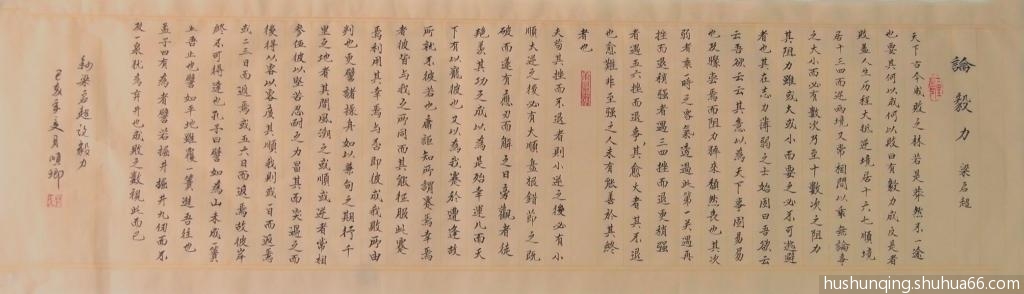 論毅力 梁启超
天下古今成败之林若是其莽然不一途
也要其何以成何以败曰有毅力成反是者
败盖人生历程大抵逆境居十六七順境
居十三四而逆两境又常相間以乘無論事
之大小而必有數次乃至十數次之阻力
其阻力雖或大或小而要之必不可逃避
者也其在志力薄弱之士始固曰吾欲云
云吾欲云云其意以為天下事固易易
也及驟尝焉而阻力猝来頹然丧也其次
弱者乘一時之客氣透過此第一关遇再
挫而退稍强者遇三四挫而退更稍强
者遇五六挫而退事其愈大者其不退
也愈難非至强之人未有能善於其終
者也
夫苟其挫而不退者則小逆之後必有小
順大逆之後必有大順盘根錯節之既
破而遂有應刃而解之日旁觀者徒
艳羡其功之成以為是殆幸運儿而天
下有以寵彼也又以為我蹇於遭逢故
所就不彼若也庸詎知所謂蹇焉幸焉
者彼皆与我之所同而其能征服此蹇
焉利用其幸焉与否即彼成我败所由
判也更譬諸操舟如以兼旬之期行千
里之地者其間風潮之或順或逆者常相
参伍彼以坚苦忍耐之力冒其而突過之而
後得以容以容度其順我則或一日而返焉
或二三日而返焉或五六日而返焉故彼岸
終不可得達也孔子曰譬如為山未成一簣
止吾止也譬如平地雖覆一簣進吾往也
孟子曰有為者譬若掘井掘井九仞而不
及一泉犹為弃井也成敗之數視此而已
抄梁启超论毅力
己亥年夏月順卿
hushunqing.shuhua66.com